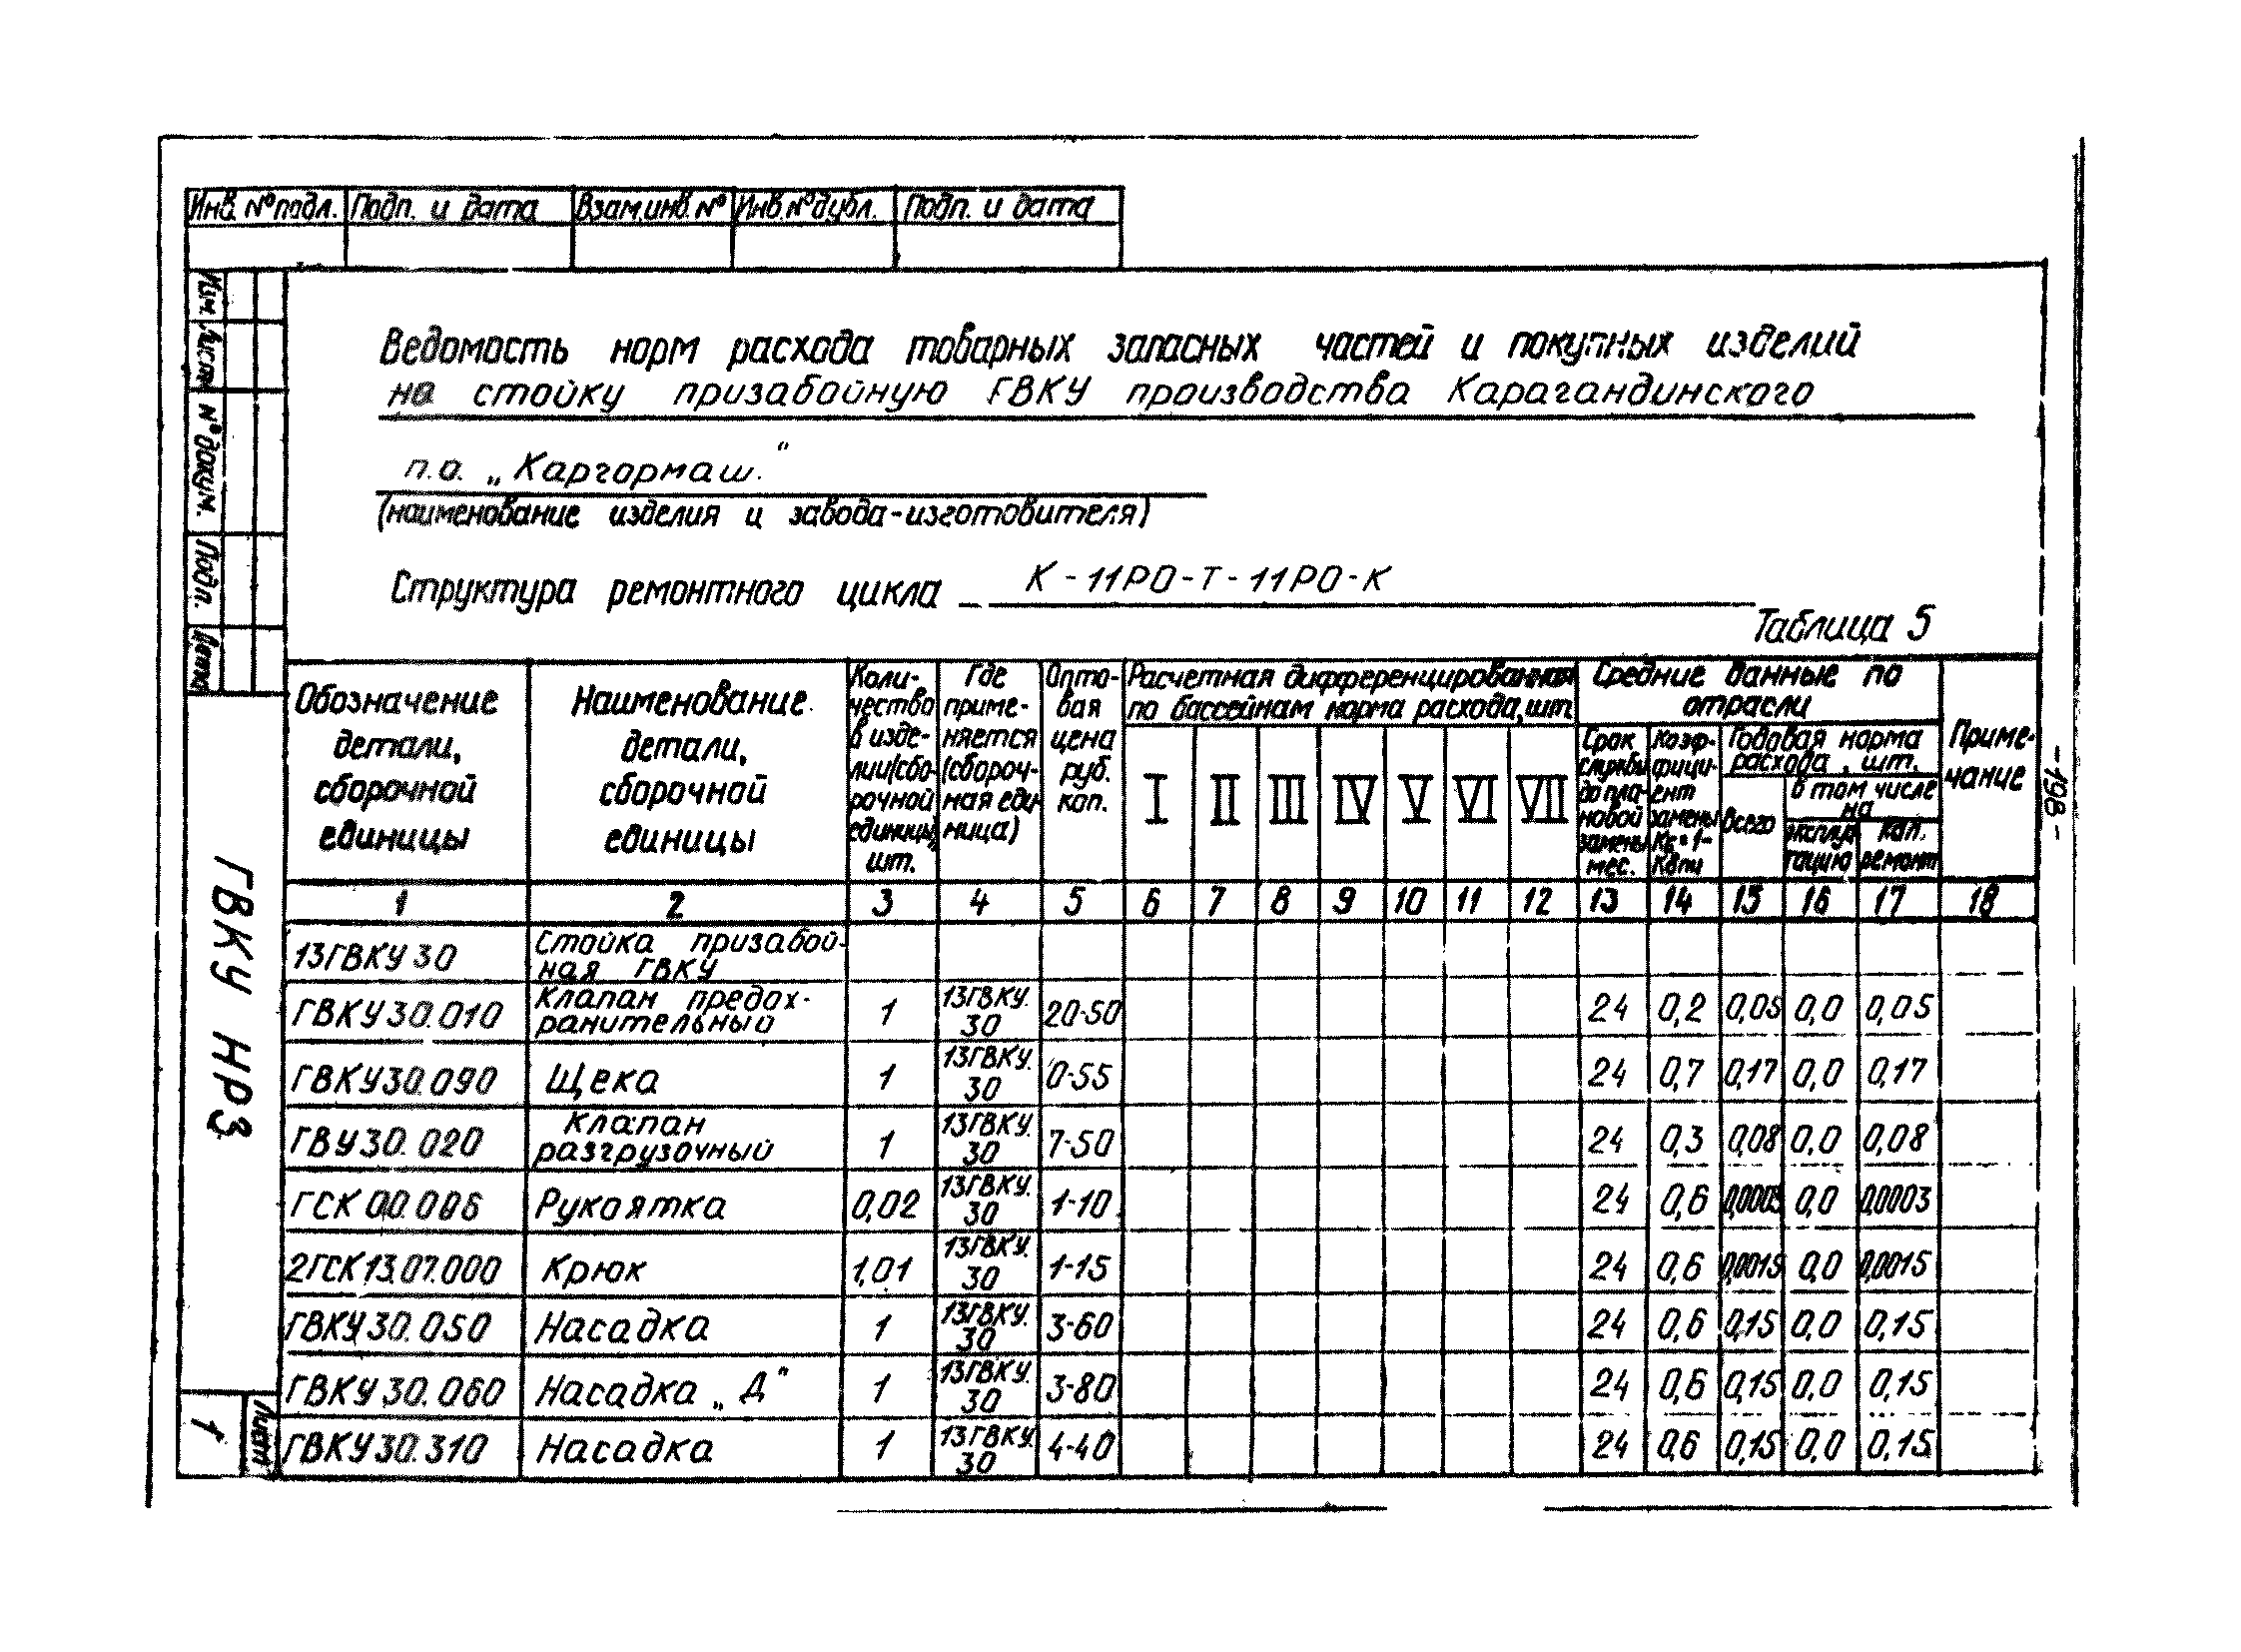 Инв. № подл. Подп. и дата Взам. инв. № Инв. № дубл. Подп. и дата
Изм. Лист № докум. Подп. Дата
Ведомость норм расхода товарных запасных частей и покупных изделий
на стойку призабойную ГВКУ производства Карагандинского
п.о. „Каргормаш."
(наименование изделия и завода-изготовителя)
Структура ремонтного цикла К-11РО-Т-11РО-К
Таблица 5
Обозначение детали, сборочной единицы
Наименование детали, сборочной единицы
Количество в изделии (сборочной единицы) шт.
Где применяется (сборочная единица)
Оптовая цена руб. коп.
Расчетная дифференцированная по бассейнам норма расхода, шт.
I II III IV V VI VII
Средние данные по отрасли
Срок службы до плановой замены мес.
Коэффициент замены
Годовая норма расхода, шт.
Всего
в том числе на
эксплуатацию
кап. ремонт
Примечание
1 2 3 4 5 6 7 8 9 10 11 12 13 14 15 16 17 18
13ГВКУ30 Стойка призабойная ГВКУ
ГВКУ30.010 Клапан предохранительный 1 13ГВКУ.30 20-50 24 0,2 0,05 0,0 0,05
ГВКУ30.090 Щека 1 13ГВКУ.30 0-55 24 0,7 0,17 0,0 0,17
ГВУ30.020 Клапан разгрузочный 1 13ГВКУ.30 7-50 24 0,3 0,08 0,0 0,08
ГСК00.006 Рукоятка 0,02 13ГВКУ.30 1-10 24 0,6 0,0003 0,0 0,0003
2ГСК13.07.000 Крюк 1,01 13ГВКУ.30 1-15 24 0,6 0,0015 0,0 0,0015
ГВКУ30.050 Насадка 1 13ГВКУ.30 3-60 24 0,6 0,15 0,0 0,15
ГВКУ30.060 Насадка „Д" 1 13ГВКУ.30 3-80 24 0,6 0,15 0,0 0,15
ГВКУ30.310 Насадка 1 13ГВКУ.30 4-40 24 0,6 0,15 0,0 0,15
ГВКУ НРЗ
Лист
1
-198-